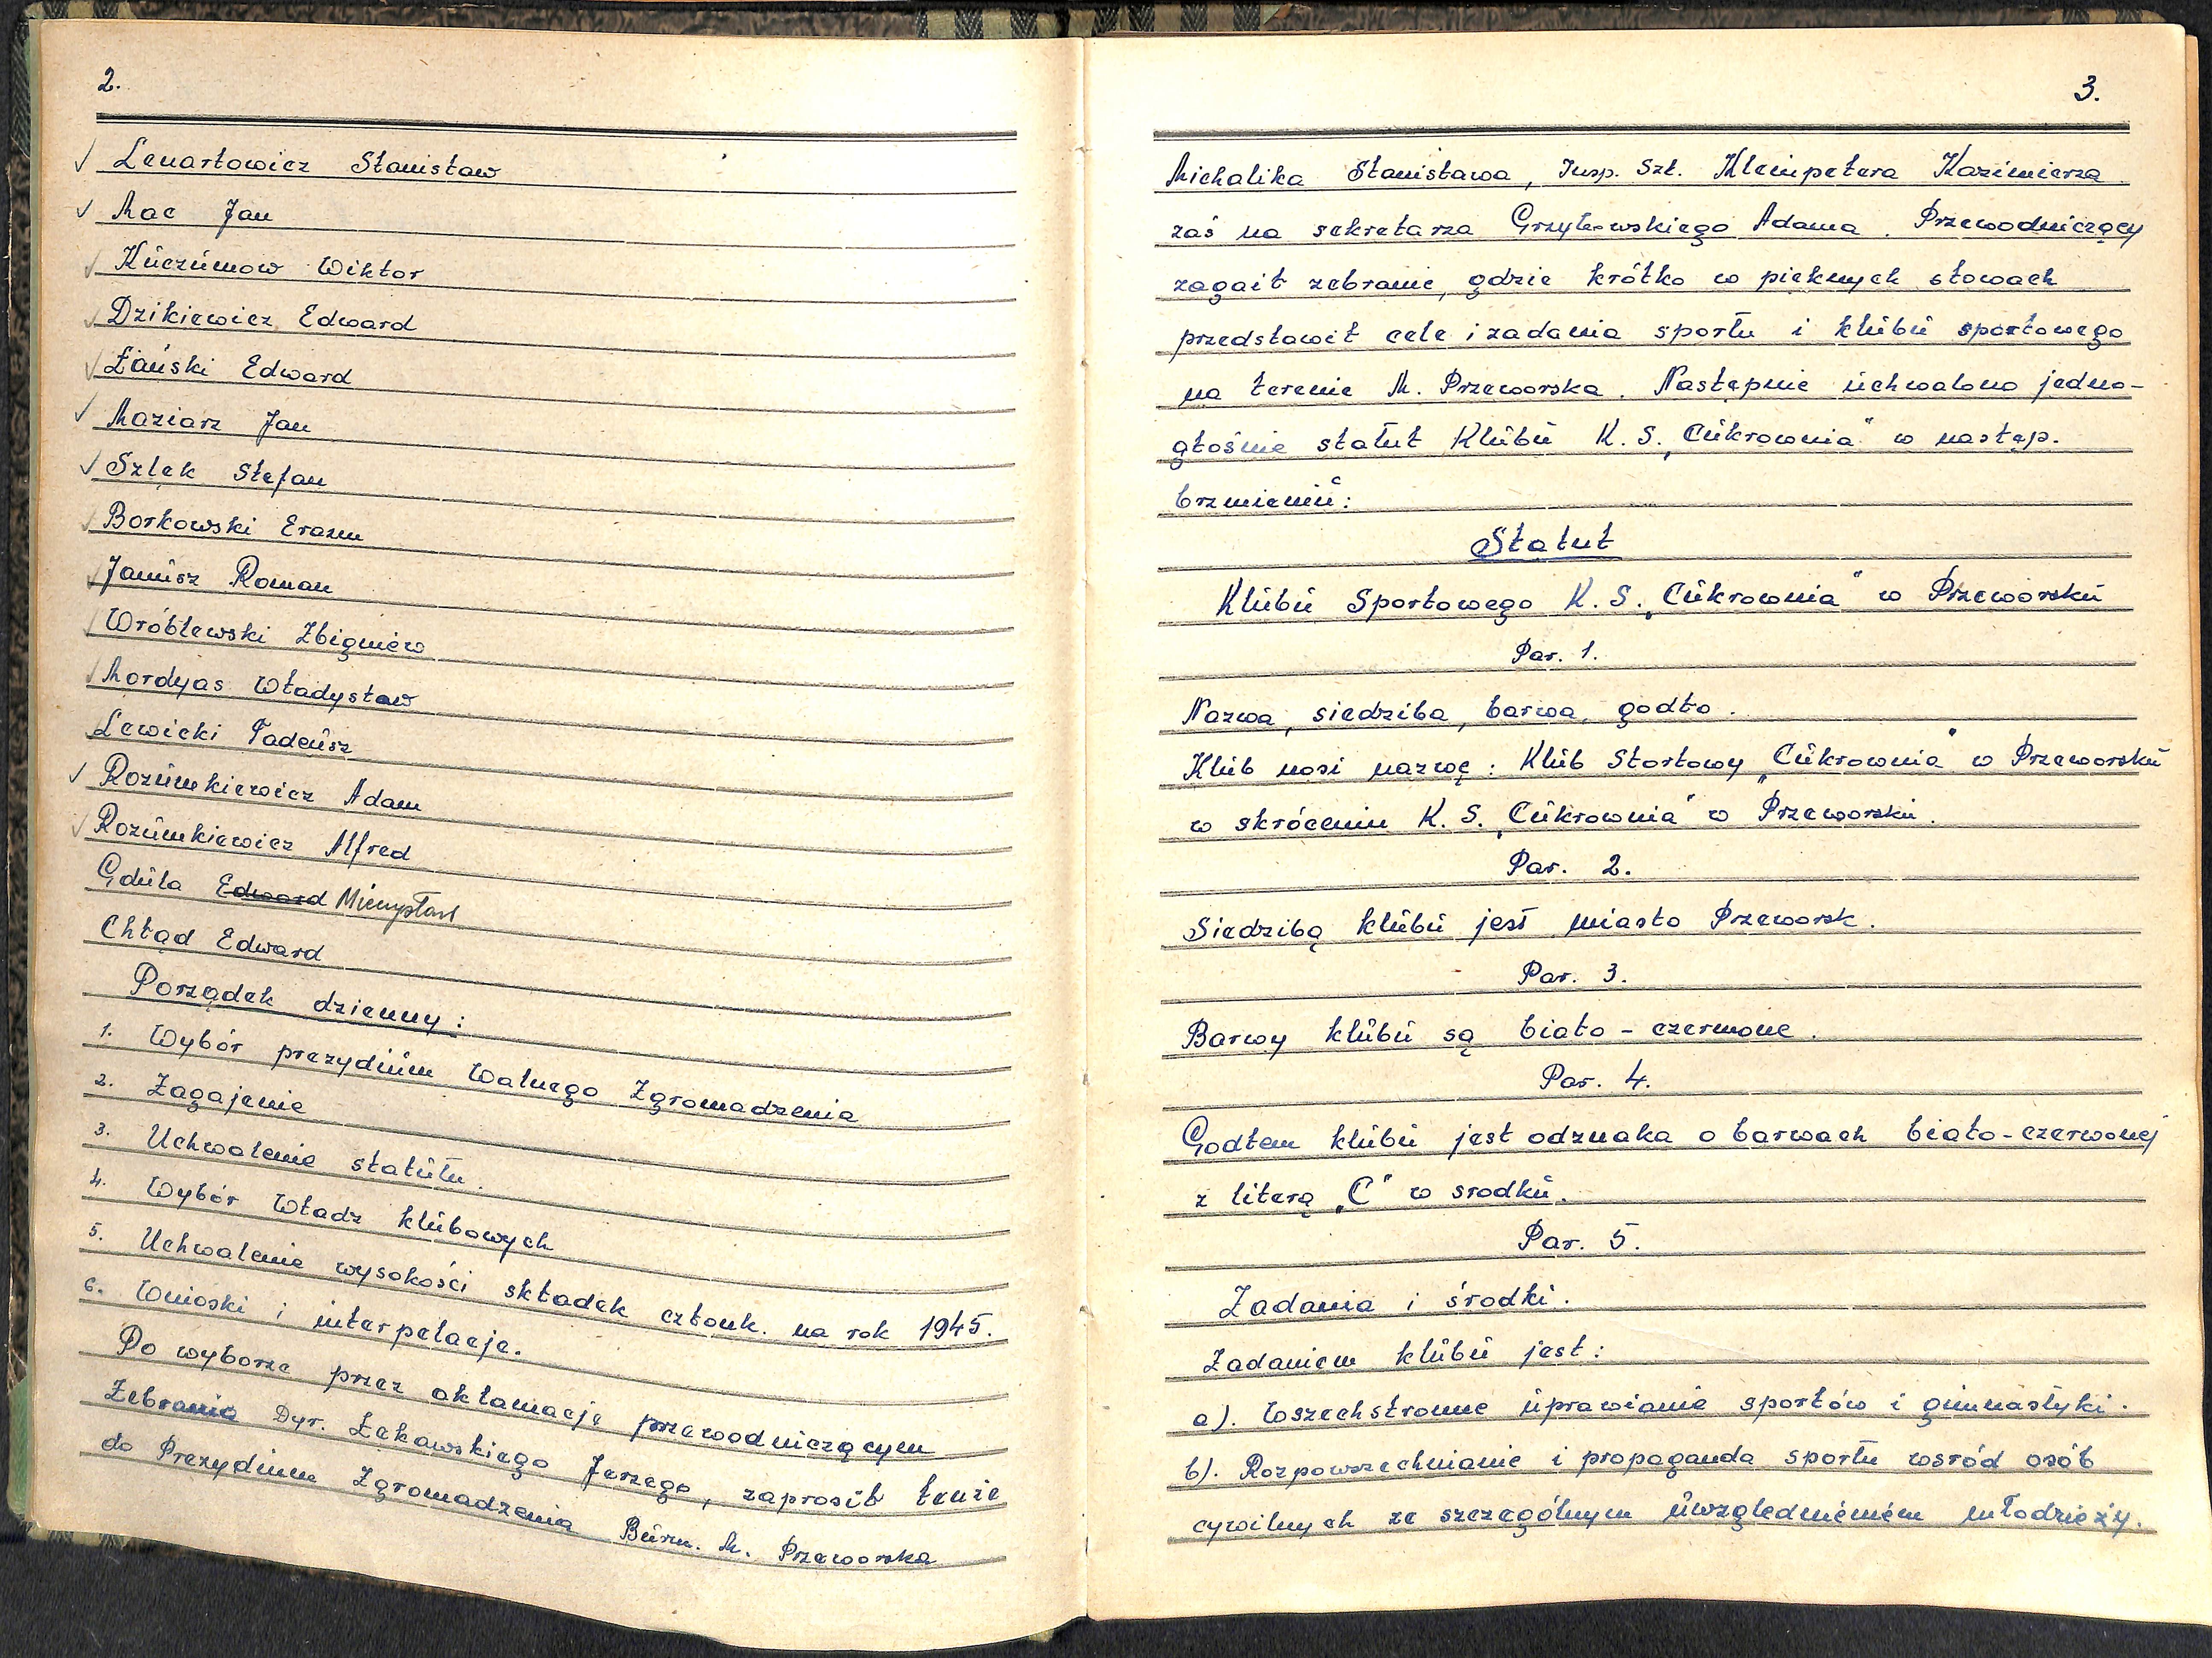 2.
✓ Lenartowicz Stanisław
✓ Mac Jan
✓ Kuczumow Wiktor
✓ Dzikiewicz Edward
✓ Łański Edward
✓ Maziarz Jan
✓ Szlęk Stefan
✓ Borkowski Erazm
✓ Janusz Roman
✓ Wróblewski Zbigniew
✓ Mordyas Władysław
Lewicki Tadeusz
✓ Rozumkiewicz Adam
✓ Rozumkiewicz Alfred
Gduła Edward Mieczysław
Chłąd Edward
Porządek dzienny:
1. Wybór prezydium Walnego Zgromadzenia
2. Zagajenie
3. Uchwalenie statutu.
4. Wybór Władz klubowych
5. Uchwalenie wysokości składek członk. na rok 1945.
6. Wnioski i interpelacje.
Po wyborze przez aklamację przewodniczącym
Zebrania Dyr. Łękawskiego Jerzego, zaprosił tenże
do Prezydium Zgromadzenia Burm. M. Przeworska
3.
Michalika Stanisława, Insp. Szk. Klempetera Kazimierza
zaś na sekretarza Grzybowskiego Adama. Przewodniczący
zagaił zebranie, gdzie krótko w pięknych słowach
przedstawił cele i zadania sportu i klubu sportowego
na terenie M. Przeworska. Następnie uchwalono jedno-
głośnie statut Klubu K. S. „Cukrownia" w następ.
brzmieniu:
Statut
Klubu Sportowego K. S. „Cukrownia" w Przeworsku
Par. 1.
Nazwa, siedziba, barwa, godło.
Klub nosi nazwę: Klub Stortowy „Cukrownia" w Przeworsku
w skróceniu K. S. „Cukrownia" w Przeworsku.
Par. 2.
Siedzibą klubu jest miasto Przeworsk.
Par. 3.
Barwy klubu są biało - czerwone.
Par. 4.
Godłem klubu jest odznaka o barwach biało-czerwonej
z literą „C" w srodku.
Par. 5.
Zadania i środki.
Zadaniem klubu jest:
a). Wszechstronne uprawianie sportów i gimnastyki.
b). Rozpowszechnianie i propaganda sportu wsród osób
cywilnych ze szczególnym uwzględnieniem młodzieży.